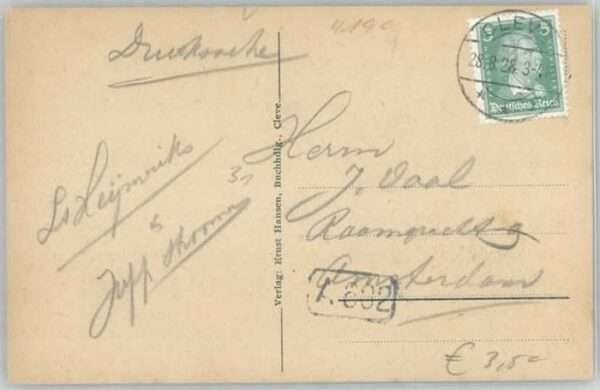 Drucksache
Ls Heijmriks
&
Jopp
31
Verlag: Ernst Hansen, Buchhdlg., Cleve.
CLEVE
28.8.28. 3-4
5
Deutsches Reich
Herrn
J. Vaal
Raamgracht 9
Amsterdam
A. 392
€ 3,50